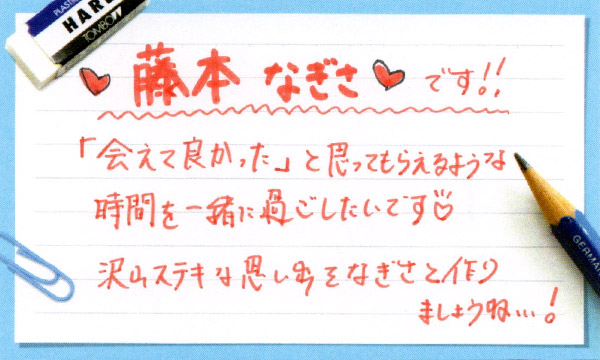 PLASTIC
HARD
TOMBOW
藤本 なぎさ です!!
「会えて良かった」と思ってもらえるような
時間を一緒に過ごしたいです♡
沢山ステキな思い出をなぎさと作り
ましょうね…!
GERMAN